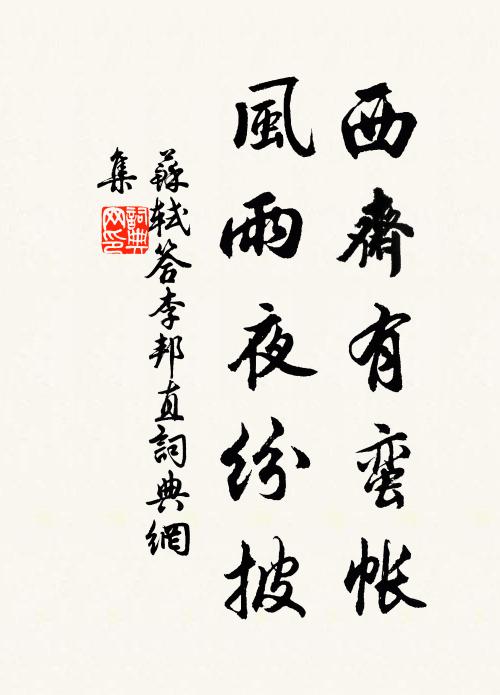 西齋有蛮帐
風雨夜紛披
蘇轼答李邦直詞典網
集
詞典网印